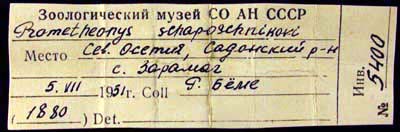 Зоологический музей СО АН СССР
Prometheomys schaposchnikovi
Место Сев. Осетия, Садонский р-н
с. Зарамаг
5. VII 1951г. Coll Р. Бёме
(1880) Det.
Инв. № 5400